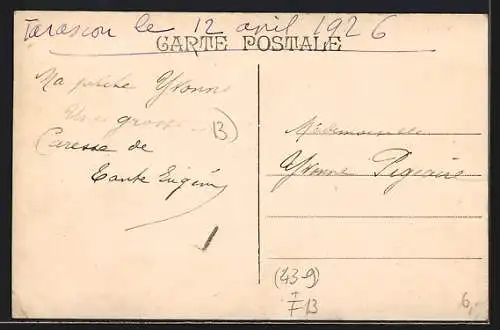 Tarascon le 12 avril 1926
CARTE POSTALE
Ma petite Yvonne
Une grosse
13
Caresse de
Tante Eugénie
Mademoiselle
Yvonne
(439)
F 13
6,